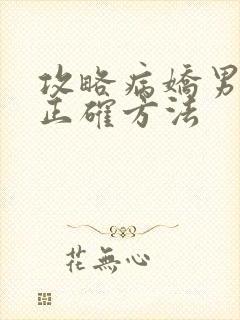 攻略病嬌男
正確方法
花無心